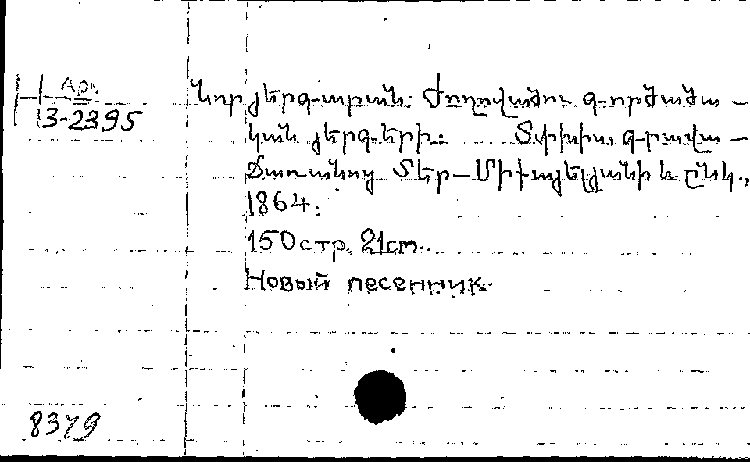 Арм
3-2395
Նոր երգարան: Ժողովածու գործածա-
կան երգերի: Տփխիս, գրավա-
ճառանոց Տեր-Միքայելյանի և ընկ.,
1864:
150 стр. 21 cm.
Новый песенник
8379